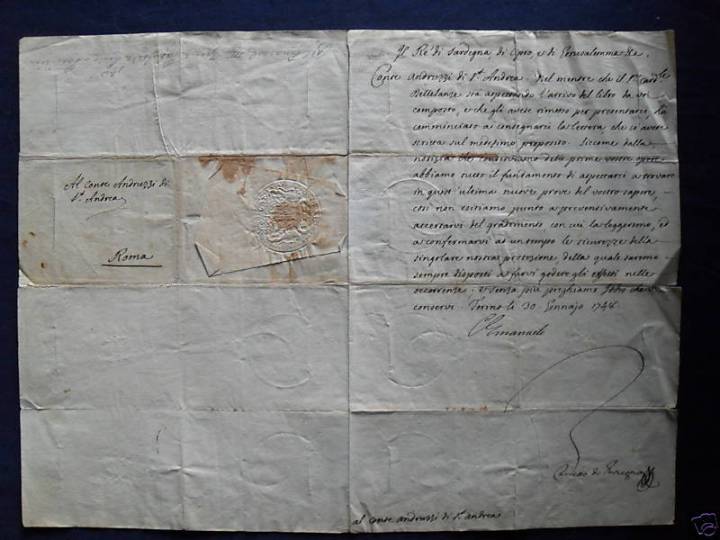 Il Re di Sardegna di Cipro, e di Gerusalemme &a.
Conte Andruzzi di St. Andrea. Nel mentre che il Pre. Carle
Bettelanze sta aspettando l'arrivo del libro da voi
composto, e che gli avete rimesso per presentarci, ha
cominciato a consegnarci la lettera che ci avete
scritta sul medesimo proposito. Siccome dalla
notizia che del prime vostre opere
abbiamo tutto il fondamento di aspettarci a trovare
in quest'ultima nuove prove del vostro sapere,
così non esitiamo punto a preventivamente
accertarvi del gradimento con cui la leggeremo, ed
a confermarvi ad un tempo le sicurezze della
singolare nostra protezione, della quale saremo
sempre disposti a farvi godere gli effetti nelle
occorrenze. E senza più preghiamo Iddio che vi
conservi. Torino li 30. Gennajo 1748.
C Emanuele
al conte andruzzi di st. andrea
Al Conte Andruzzi di
St. Andrea
Roma